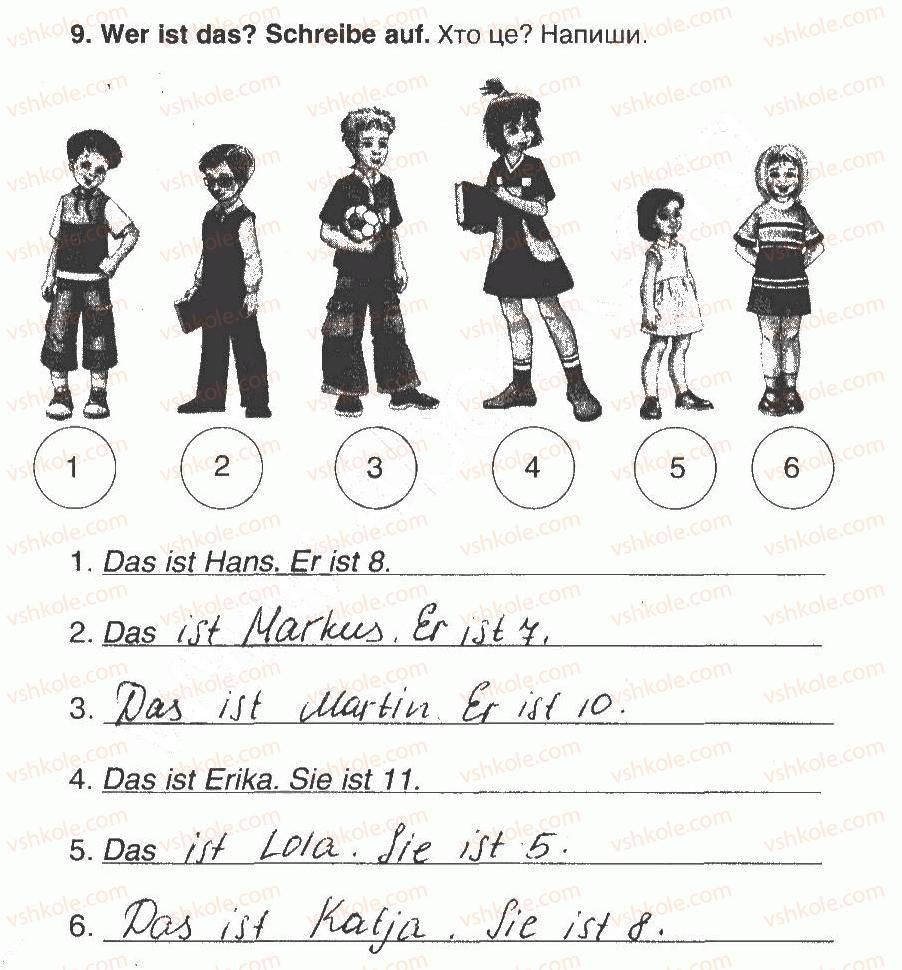 9. Wer ist das? Schreibe auf. Хто це? Напиши.
1 2 3 4 5 6
1. Das ist Hans. Er ist 8.
2. Das ist Markus. Er ist 7.
3. Das ist Martin. Er ist 10.
4. Das ist Erika. Sie ist 11.
5. Das ist Lola. Sie ist 5.
6. Das ist Katja. Sie ist 8.
vshkole.com